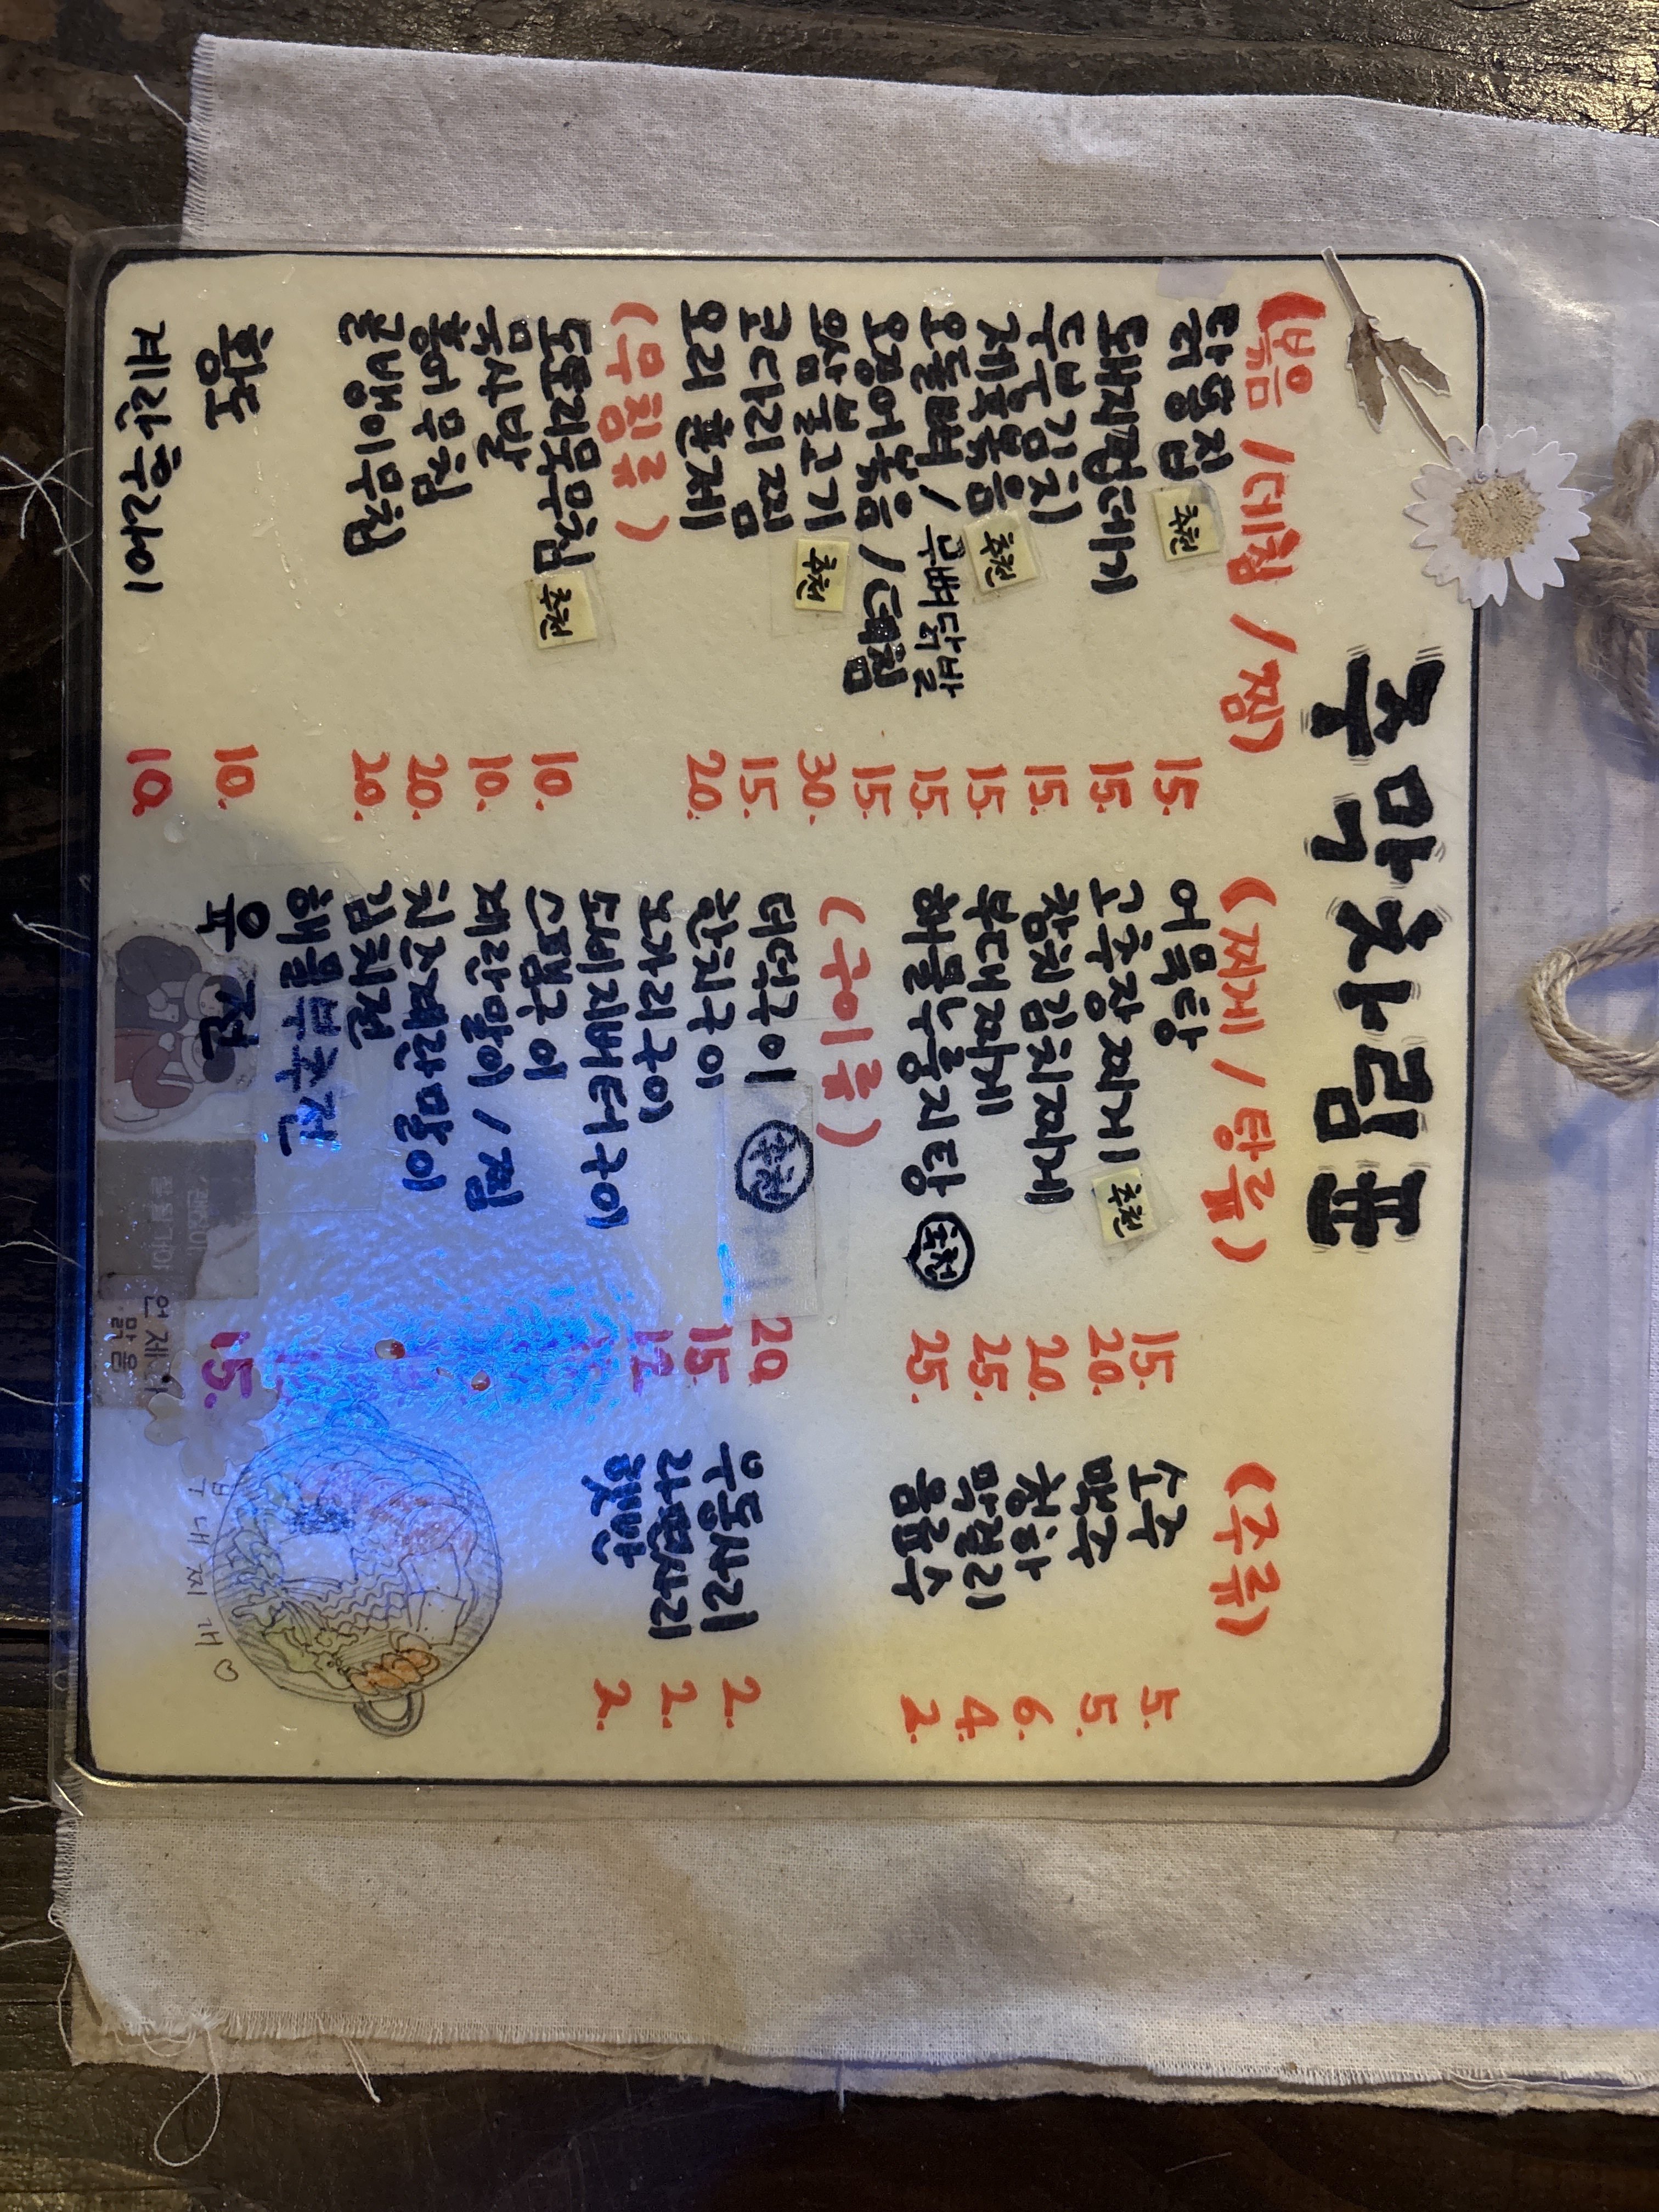 주막차림표
(볶음 /데침 /찜)
닭똥집 추천 15.
돼지껍데기 15.
두부김치 15.
제육볶음 추천 15.
오돌뼈 / 무뼈닭발 15.
오징어볶음 /데침 15.
오삼불고기 추천 30.
코다리찜 15.
오리훈제 20.
(무침류)
도토리묵무침 추천 10.
묵사발 10.
홍어무침 20.
골뱅이무침 20.
황도 10.
계란후라이 10.
(찌게 / 탕류)
어묵탕 15.
고추장찌게 추천 20.
참치김치찌게 20.
부대찌게 25.
해물누룽지탕 추천 25.
(구이류)
더덕구이 추천 20.
한치구이 15.
노가리구이 12.
도비지버터구이
스팸구이
계란말이 / 찜
치즈계란말이
김치전
해물부추전
육전 15.
(주류)
소주 5.
맥주 5.
청하 6.
막걸리 4.
음료수 2.
우동사리 2.
라면사리 2.
햇반 2.
부대찌개